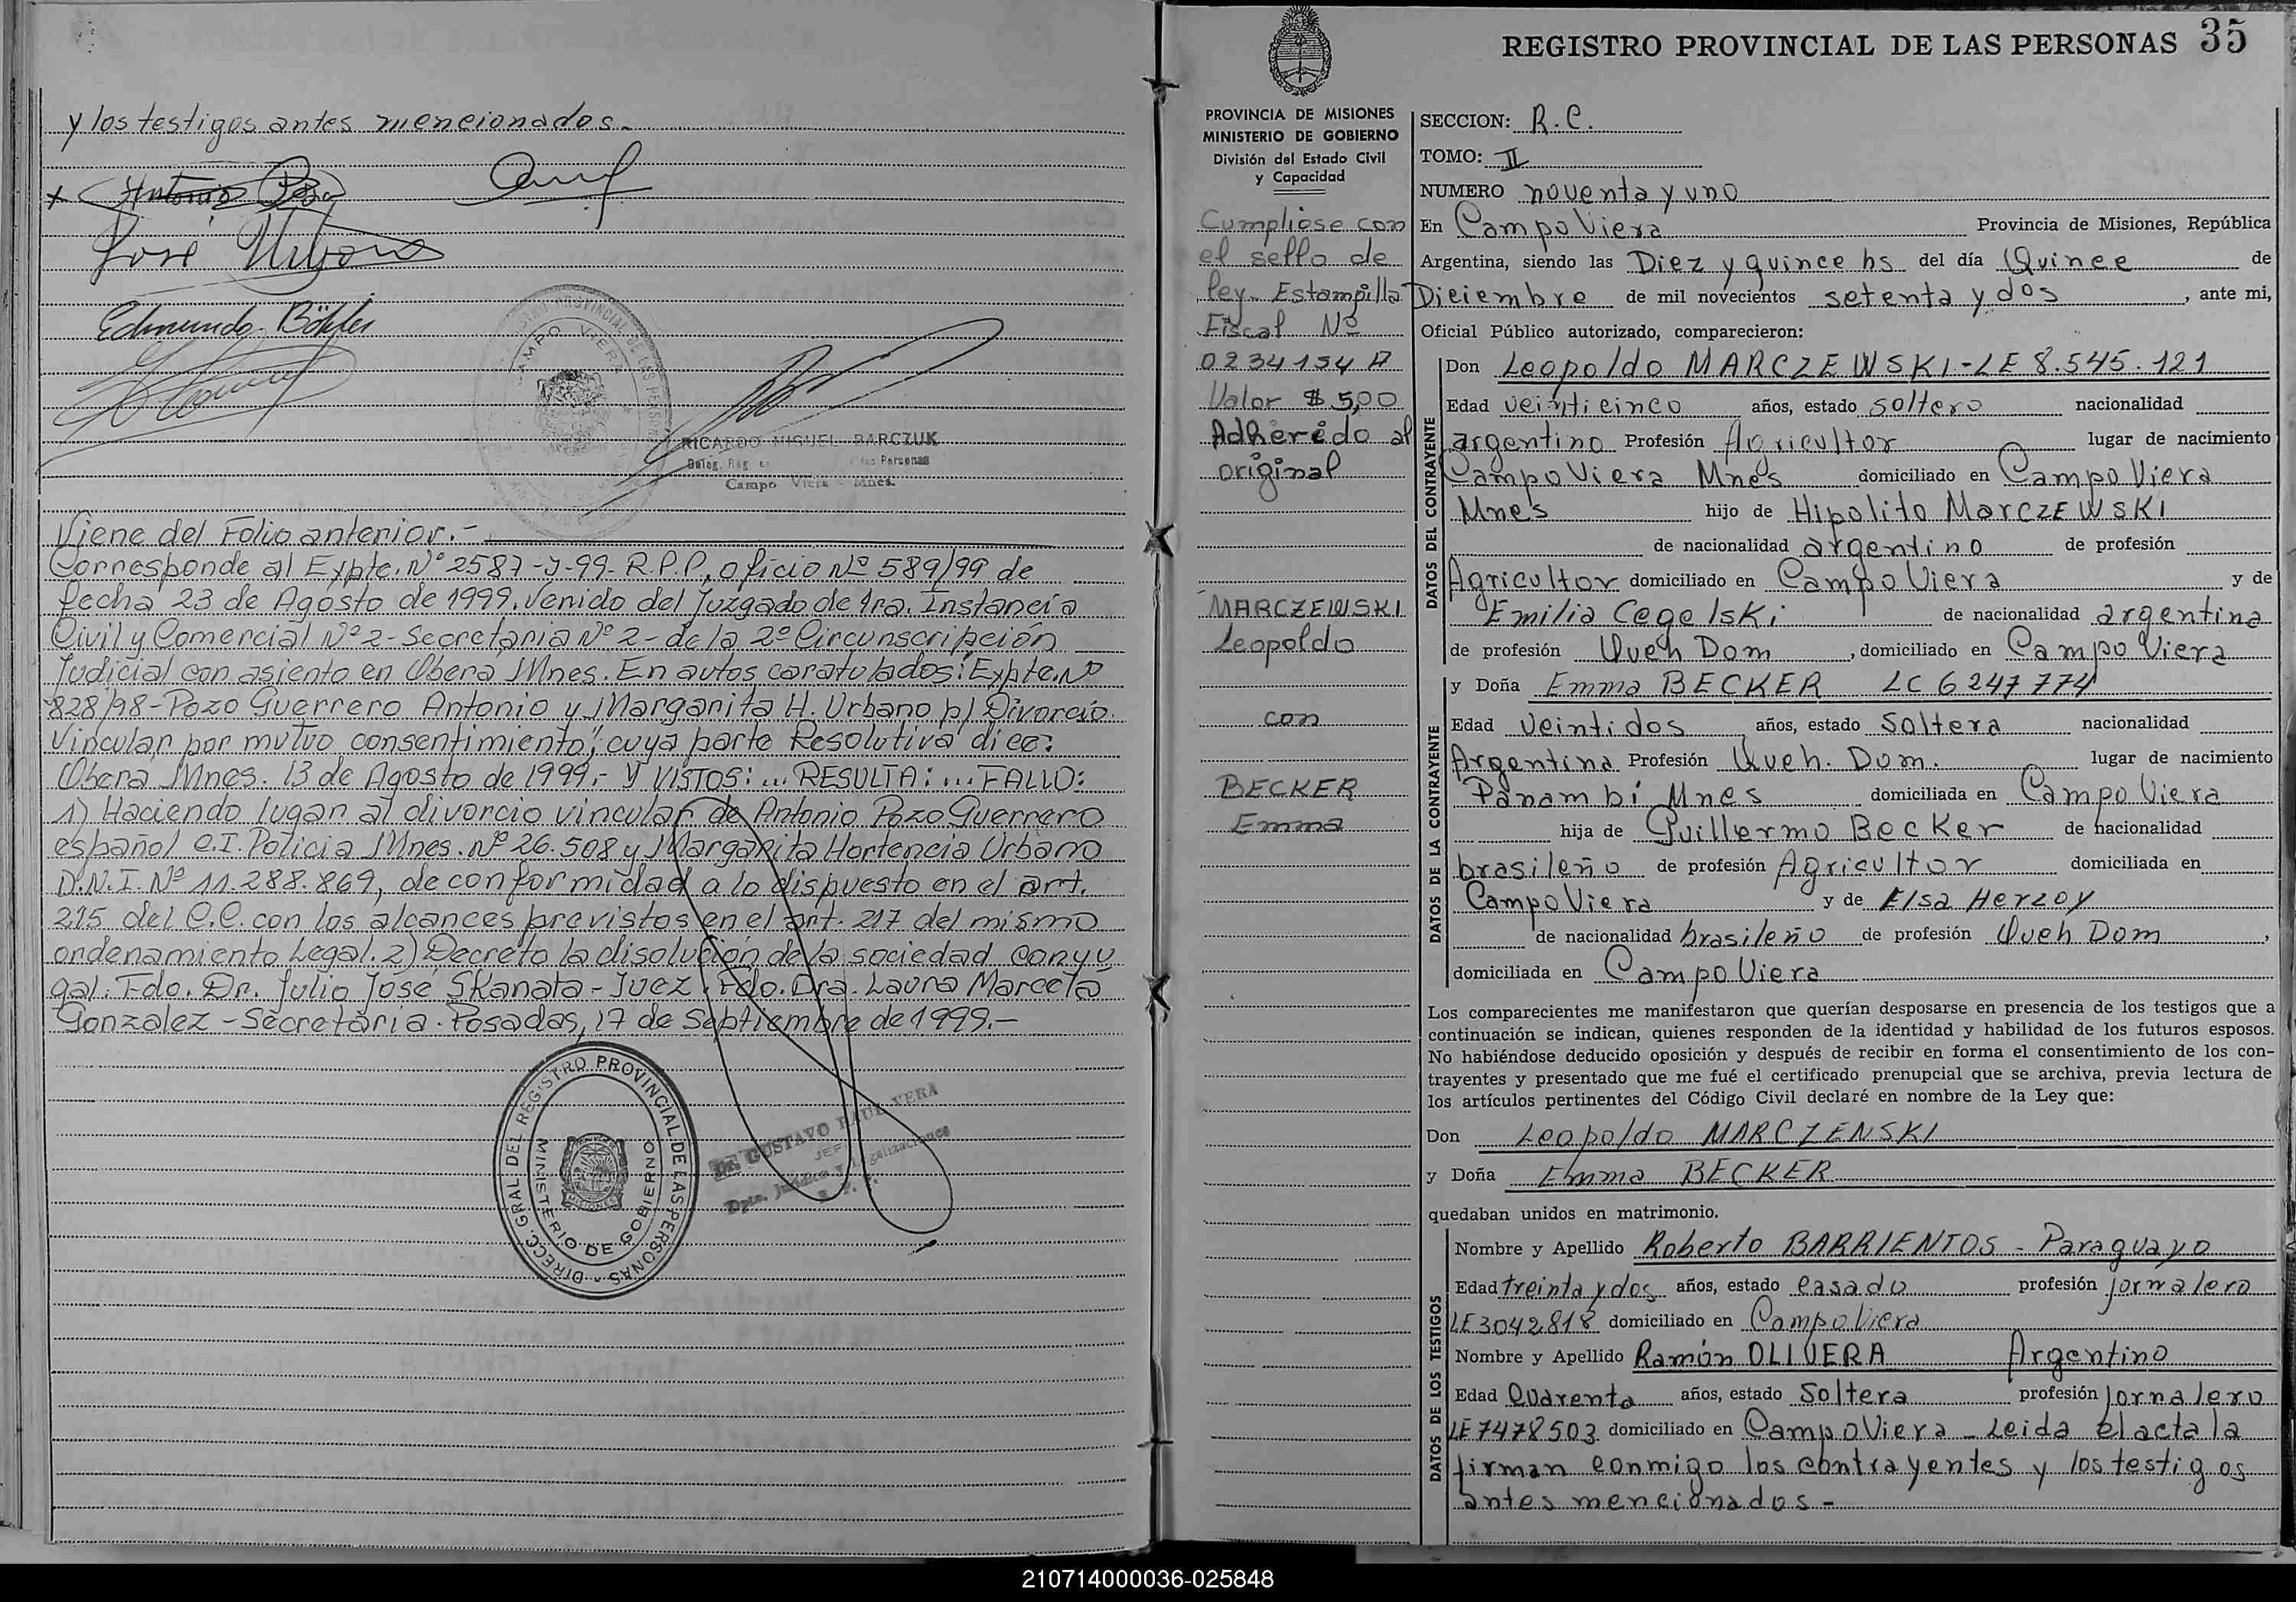 y los testigos antes mencionados.-
José Urbano
Edmundo Böhler
RICARDO MIGUEL BARCZUK
Campo Viera - Mnes.
Viene del Folio anterior.-
Corresponde al Expte. Nº 2587-J-99-R.P.P., oficio Nº 589/99 de
fecha 23 de Agosto de 1999, venido del Juzgado de 1ra. Instancia
Civil y Comercial Nº 2 - Secretaria Nº 2 - de la 2º Circunscripción
Judicial con asiento en Oberá Mnes. En autos caratulados: "Expte. Nº
828/98 - Pozo Guerrero Antonio y Margarita H. Urbano p/ Divorcio
Vincular por mutuo consentimiento", cuya parte Resolutiva dice:
Oberá, Mnes. 13 de Agosto de 1999.- Y VISTOS: ... RESULTA: ... FALLO:
1) Haciendo lugar al divorcio vincular de Antonio Pozo Guerrero
español C.I. Policia Mnes. Nº 26.508 y Margarita Hortencia Urbano
D.N.I. Nº 11.288.869, de conformidad a lo dispuesto en el art.
215 del C.C. con los alcances previstos en el art. 217 del mismo
ordenamiento Legal. 2) Decreto la disolución de la sociedad conyu
gal. Fdo. Dr. Julio José Skanata - Juez. Fdo. Dra. Laura Marcela
Gonzalez - Secretária. Posadas, 17 de Septiembre de 1999.-
DIRECC. GRAL DEL REGISTRO PROVINCIAL DE LAS PERSONAS
MINISTERIO DE GOBIERNO
GUSTAVO RAUL VERA
REGISTRO PROVINCIAL DE LAS PERSONAS 35
PROVINCIA DE MISIONES
MINISTERIO DE GOBIERNO
División del Estado Civil
y Capacidad
Cumpliose con
el sello de
ley. Estampilla
Fiscal Nº
0234154 A
Valor $ 5,00
Adherido al
original
MARCZEWSKI
Leopoldo
con
BECKER
Emma
SECCION: R.C.
TOMO: II
NUMERO noventa y uno
En Campo Viera Provincia de Misiones, República
Argentina, siendo las Diez y quince hs del día Quince de
Diciembre de mil novecientos setenta y dos, ante mi,
Oficial Público autorizado, comparecieron:
DATOS DEL CONTRAYENTE
Don Leopoldo MARCZEWSKI - LE 8.545.121
Edad veinticinco años, estado soltero nacionalidad
argentino Profesión Agricultor lugar de nacimiento
Campo Viera Mnes domiciliado en Campo Viera
Mnes hijo de Hipolito MARCZEWSKI
de nacionalidad argentino de profesión
Agricultor domiciliado en Campo Viera y de
Emilia Cegelski de nacionalidad argentina
de profesión Queh Dom, domiciliado en Campo Viera
DATOS DE LA CONTRAYENTE
y Doña Emma BECKER LC 6247774
Edad veintidos años, estado Soltera nacionalidad
Argentina Profesión Queh. Dom. lugar de nacimiento
Panambí Mnes domiciliada en Campo Viera
hija de Guillermo Becker de nacionalidad
brasileño de profesión Agricultor domiciliada en
Campo Viera y de Elsa Herzoy
de nacionalidad brasileño de profesión Queh Dom,
domiciliada en Campo Viera
Los comparecientes me manifestaron que querían desposarse en presencia de los testigos que a
continuación se indican, quienes responden de la identidad y habilidad de los futuros esposos.
No habiéndose deducido oposición y después de recibir en forma el consentimiento de los con-
trayentes y presentado que me fué el certificado prenupcial que se archiva, previa lectura de
los artículos pertinentes del Código Civil declaré en nombre de la Ley que:
Don Leopoldo MARCZENSKI
y Doña Emma BECKER
quedaban unidos en matrimonio.
DATOS DE LOS TESTIGOS
Nombre y Apellido Roberto BARRIENTOS - Paraguayo
Edad treinta y dos años, estado casado profesión jornalero
LE 3042818 domiciliado en Campo Viera
Nombre y Apellido Ramón OLIVERA Argentino
Edad Cuarenta años, estado Soltera profesión Jornalero
LE 7478503 domiciliado en Campo Viera - Leida el acta la
firman conmigo los contrayentes y los testigos
antes mencionados -
210714000036-025848